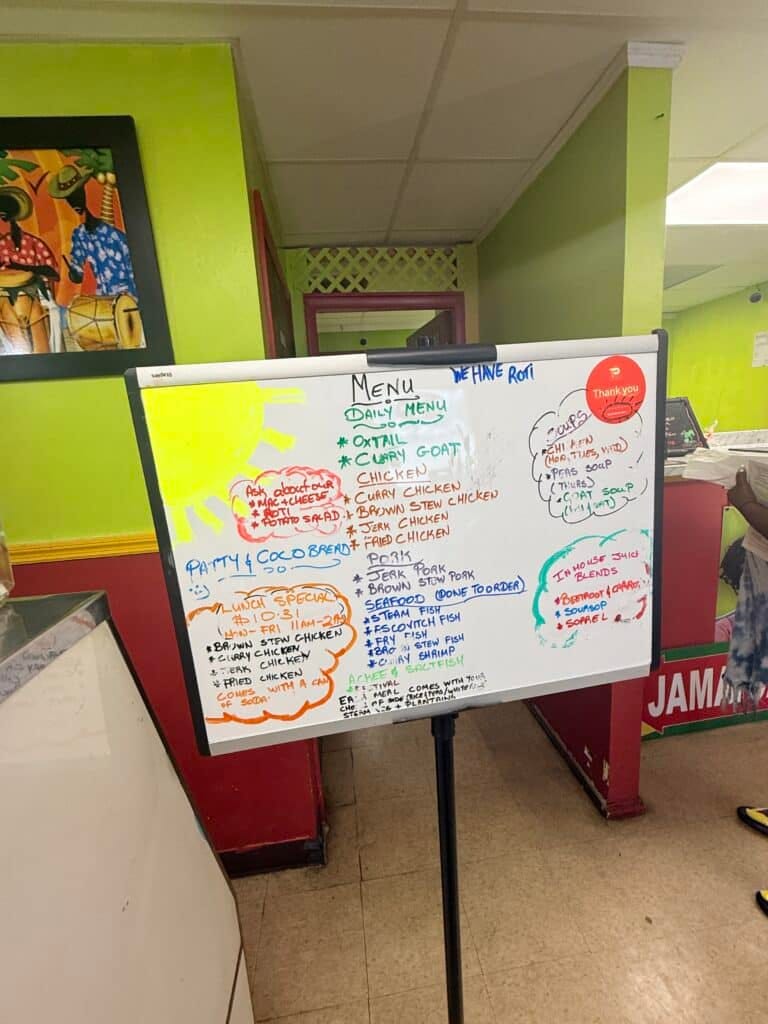 MENU
WE HAVE ROTI
DAILY MENU
* OXTAIL
* CURRY GOAT
CHICKEN
* CURRY CHICKEN
* BROWN STEW CHICKEN
* JERK CHICKEN
* FRIED CHICKEN
PORK
* JERK PORK
* BROWN STEW PORK
SEAFOOD (DONE TO ORDER)
* STEAM FISH
* ESCOVITCH FISH
* FRY FISH
* BROWN STEW FISH
* CURRY SHRIMP
ACKEE & SALTFISH
* FESTIVAL
EACH MEAL COMES WITH YOUR
STEAM VEG + PLANTAINS
Ask about our
* MAC + CHEESE
* ROTI
* POTATO SALAD
PATTY & COCO BREAD
LUNCH SPECIAL
$10.31
MON - FRI 11AM-2PM
* BROWN STEW CHICKEN
* CURRY CHICKEN
* JERK CHICKEN
* FRIED CHICKEN
COMES WITH A CAN
OF SODA
Thank you
SOUPS
* CHICKEN
(MON, TUES, WED)
* PEAS SOUP
(THURS)
* GOAT SOUP
(FRI/SAT)
IN HOUSE JUICE
BLENDS
* BEETROOT & CARROT
* SOURSOP
* SORREL
JAMA